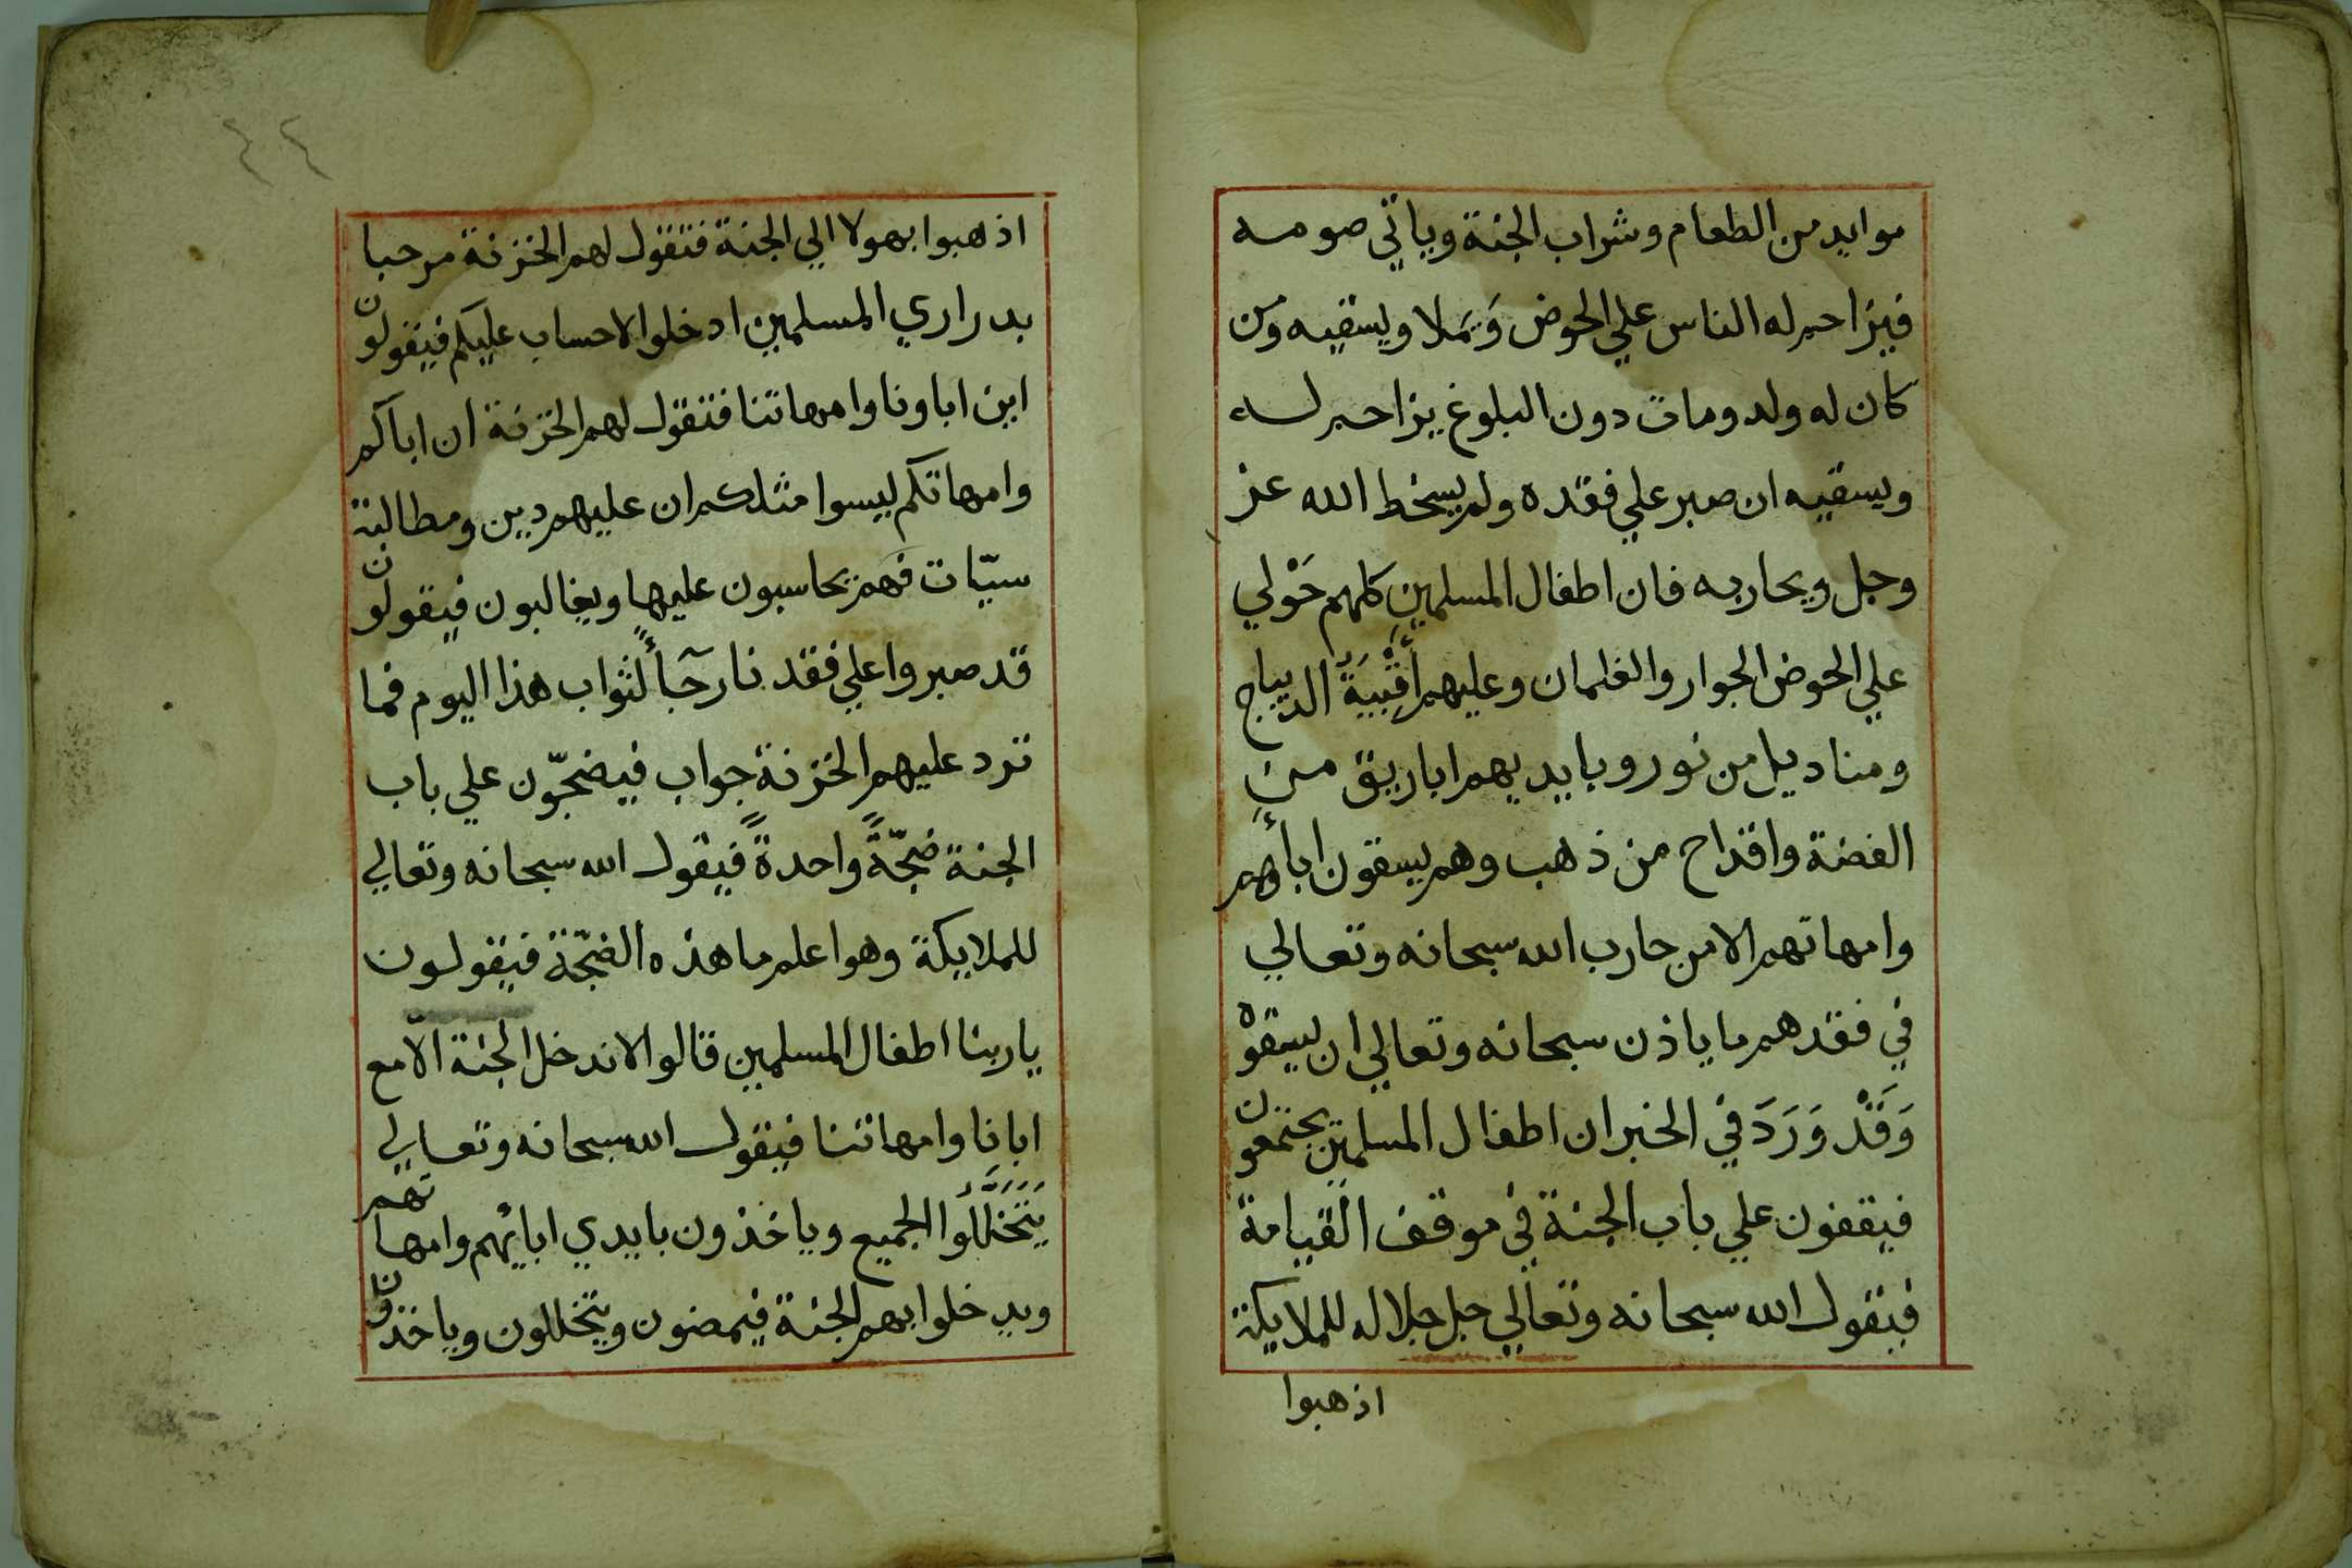 موايد من الطعام وشراب الجنة وياتي صومه
فيزاحم له الناس علي الحوض وَيَملا ويسقيه ومن
كان له ولد ومات دون البلوغ يزاحم له
ويسقيه ان صبر علي فقده ولم يسخط الله عز
وجل ويحاربه فان اطفال المسلمين كلهم حَوْلي
علي الحوض الجوار والغلمان وعليهم أَقْبِيَةُ الديباج
ومناديل من نور وبايديهم اباريق من
الفضة واقداح من ذهب وهم يسقون اباءهم
وامهاتهم الا من حارب الله سبحانه وتعالي
في فقدهم ما ياذن سبحانه وتعالي ان يسقوْه
وَقَدْ وَرَدَ في الخبر ان اطفال المسلمين يجتمعون
فيقفون علي باب الجنة في موقف القيامة
فيقول الله سبحانه وتعالي جل جلاله للملايكة
اذهبوا
٤٤
اذهبوا بهولا الي الجنة فتقول لهم الخزنة مرحبا
بدراري المسلمين ادخلوا لاحساب عليكم فيقولون
اين اباونا وامهاتنا فتقول لهم الخزنة ان اباكم
وامهاتكم ليسوا مثلكم ان عليهم دين ومطالبة
سيّات فهم يحاسبون عليها ويغالبون فيقولون
قد صبروا علي فقدنا رجآءً لثواب هذا اليوم فما
ترد عليهم الخزنة جواب فيضجّون علي باب
الجنة ضجّةً واحدةً فيقول الله سبحانه وتعالي
للملايكة وهو اعلم ما هذه الضجّة فيقولون
ياربنا اطفال المسلمين قالوا لاندخل الجنة الّا مع
ابانا وامهاتنا فيقول الله سبحانه وتعالي
يَتَخَلَّلُوا الجميع وياخذون بايدي ابايهم وامهاتهم
ويدخلوا بهم الجنة فيمضون ويتخللون وياخذون